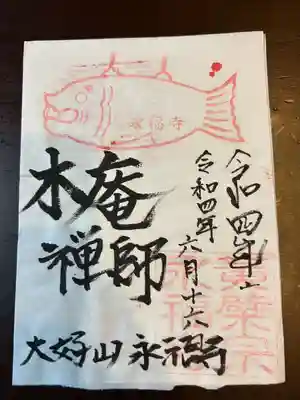 永福寺
木庵
禅師
令和四年
令和四年
六月十六
大好山 永福寺